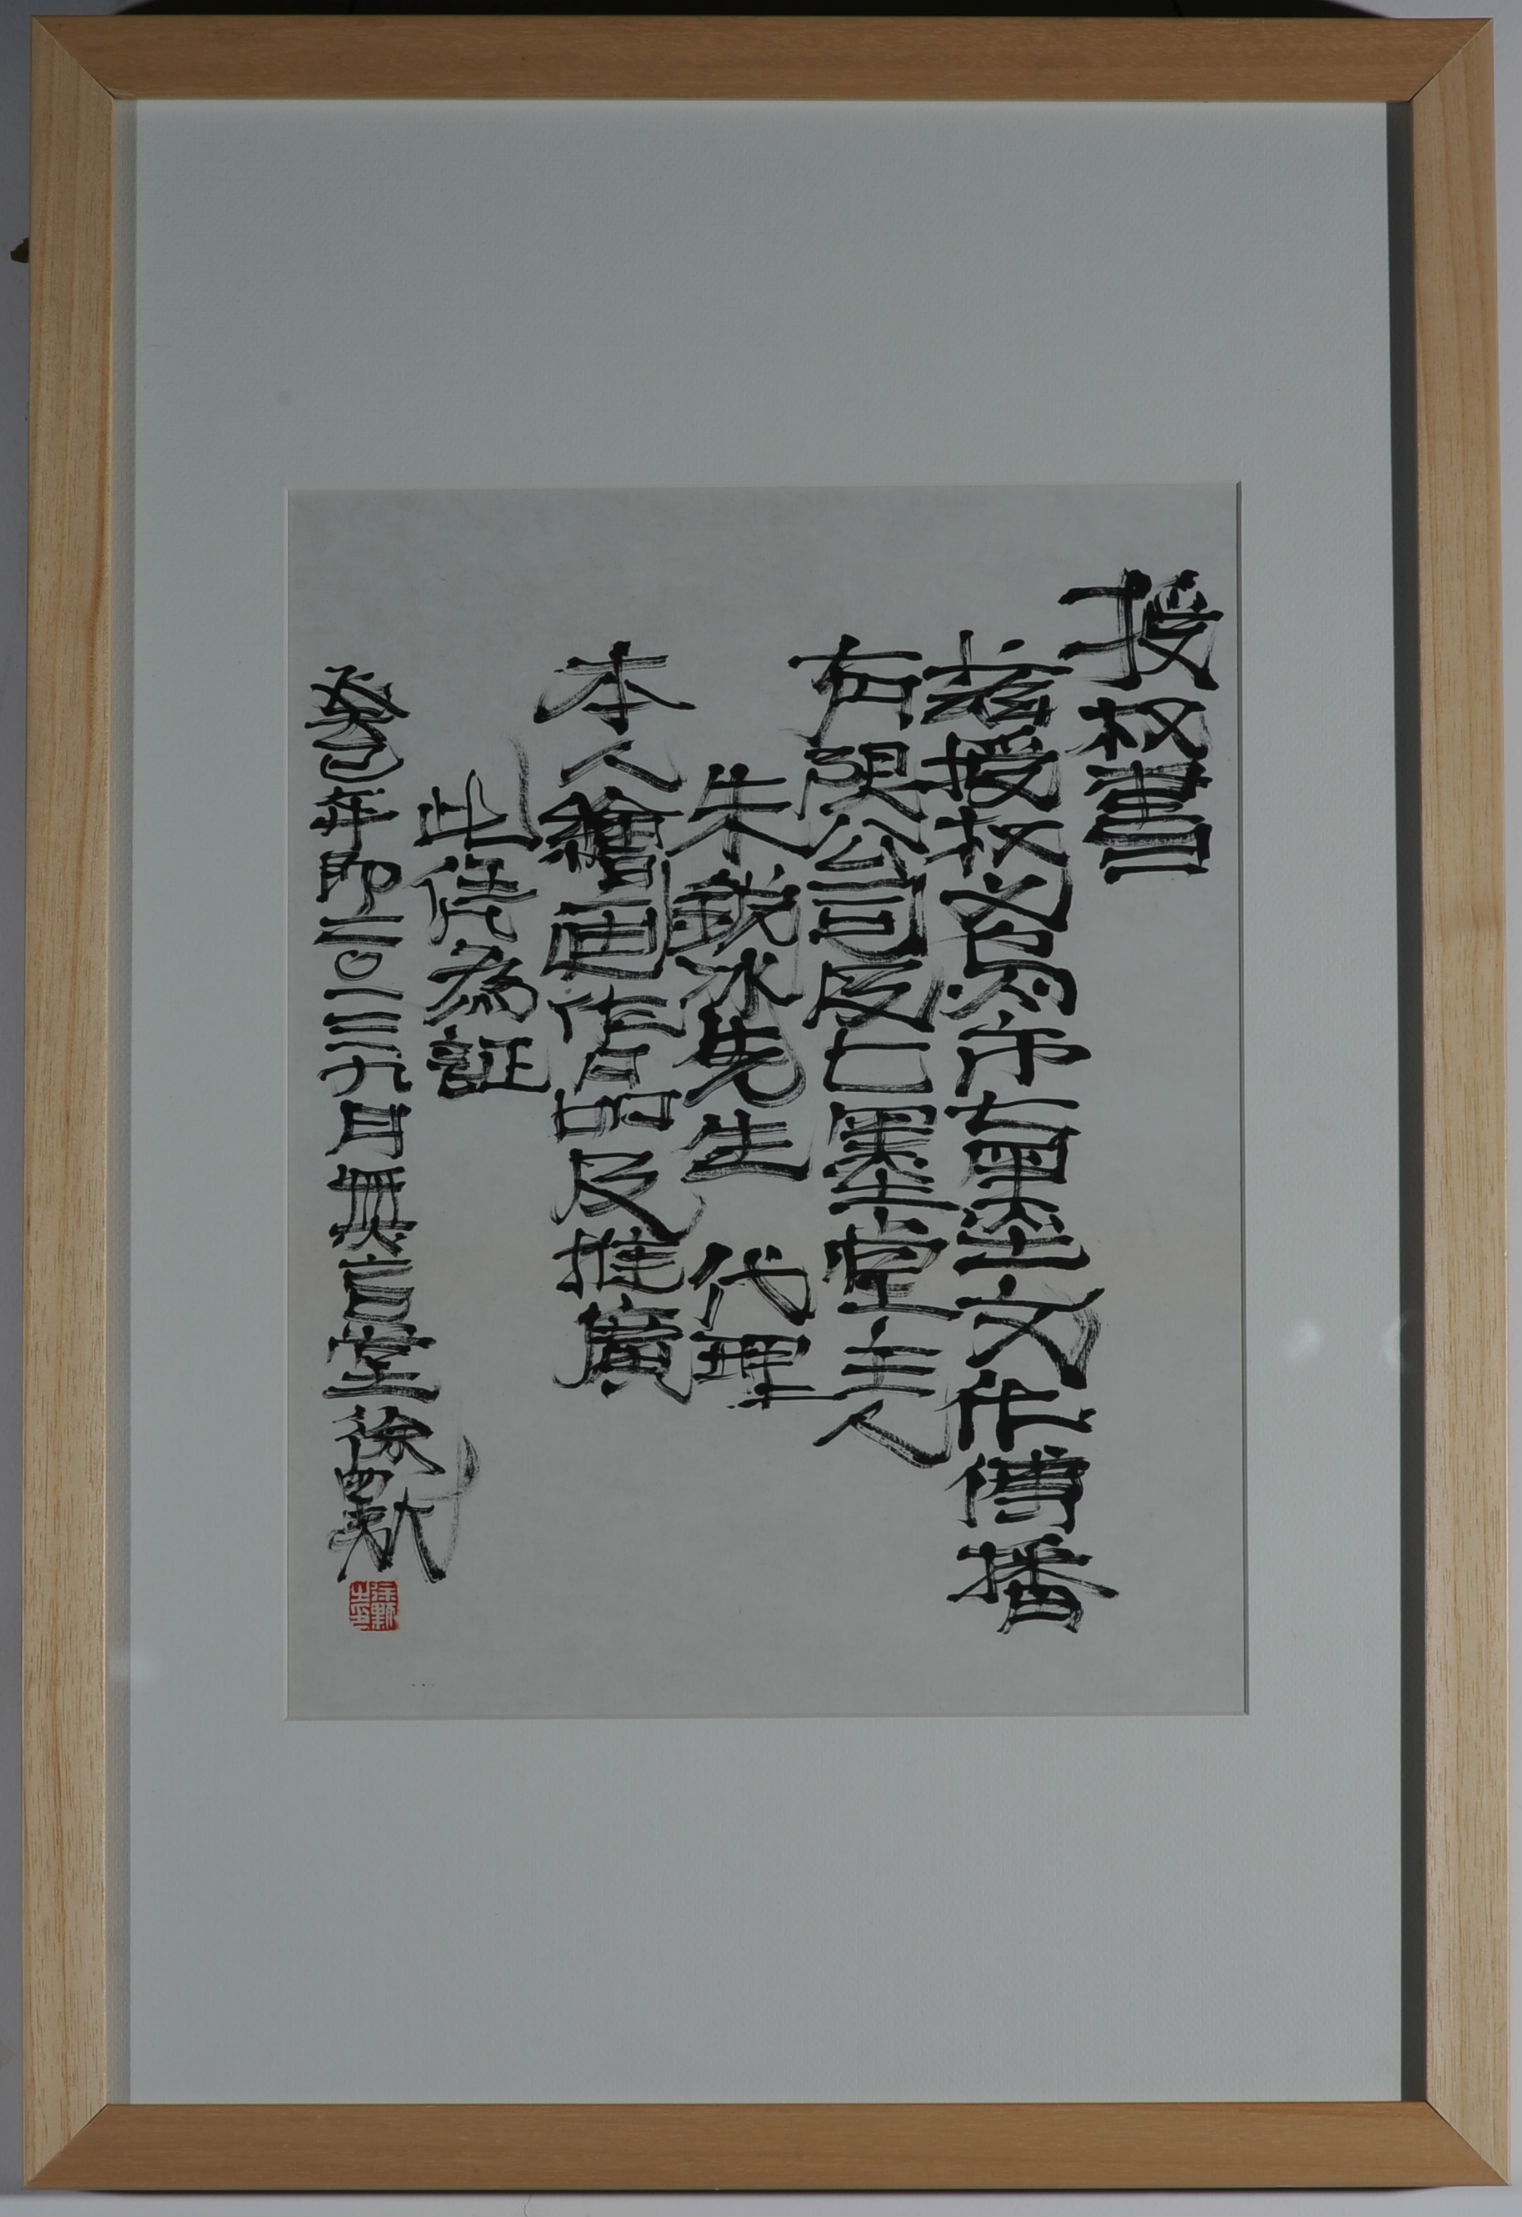 授权書
兹授权义烏市七墨文化傳播
有限公司及七墨堂主人
朱銳冰先生 代理
本人繪画作品及推廣
此凭為証
癸巳年即二〇一三九月無言堂徐默